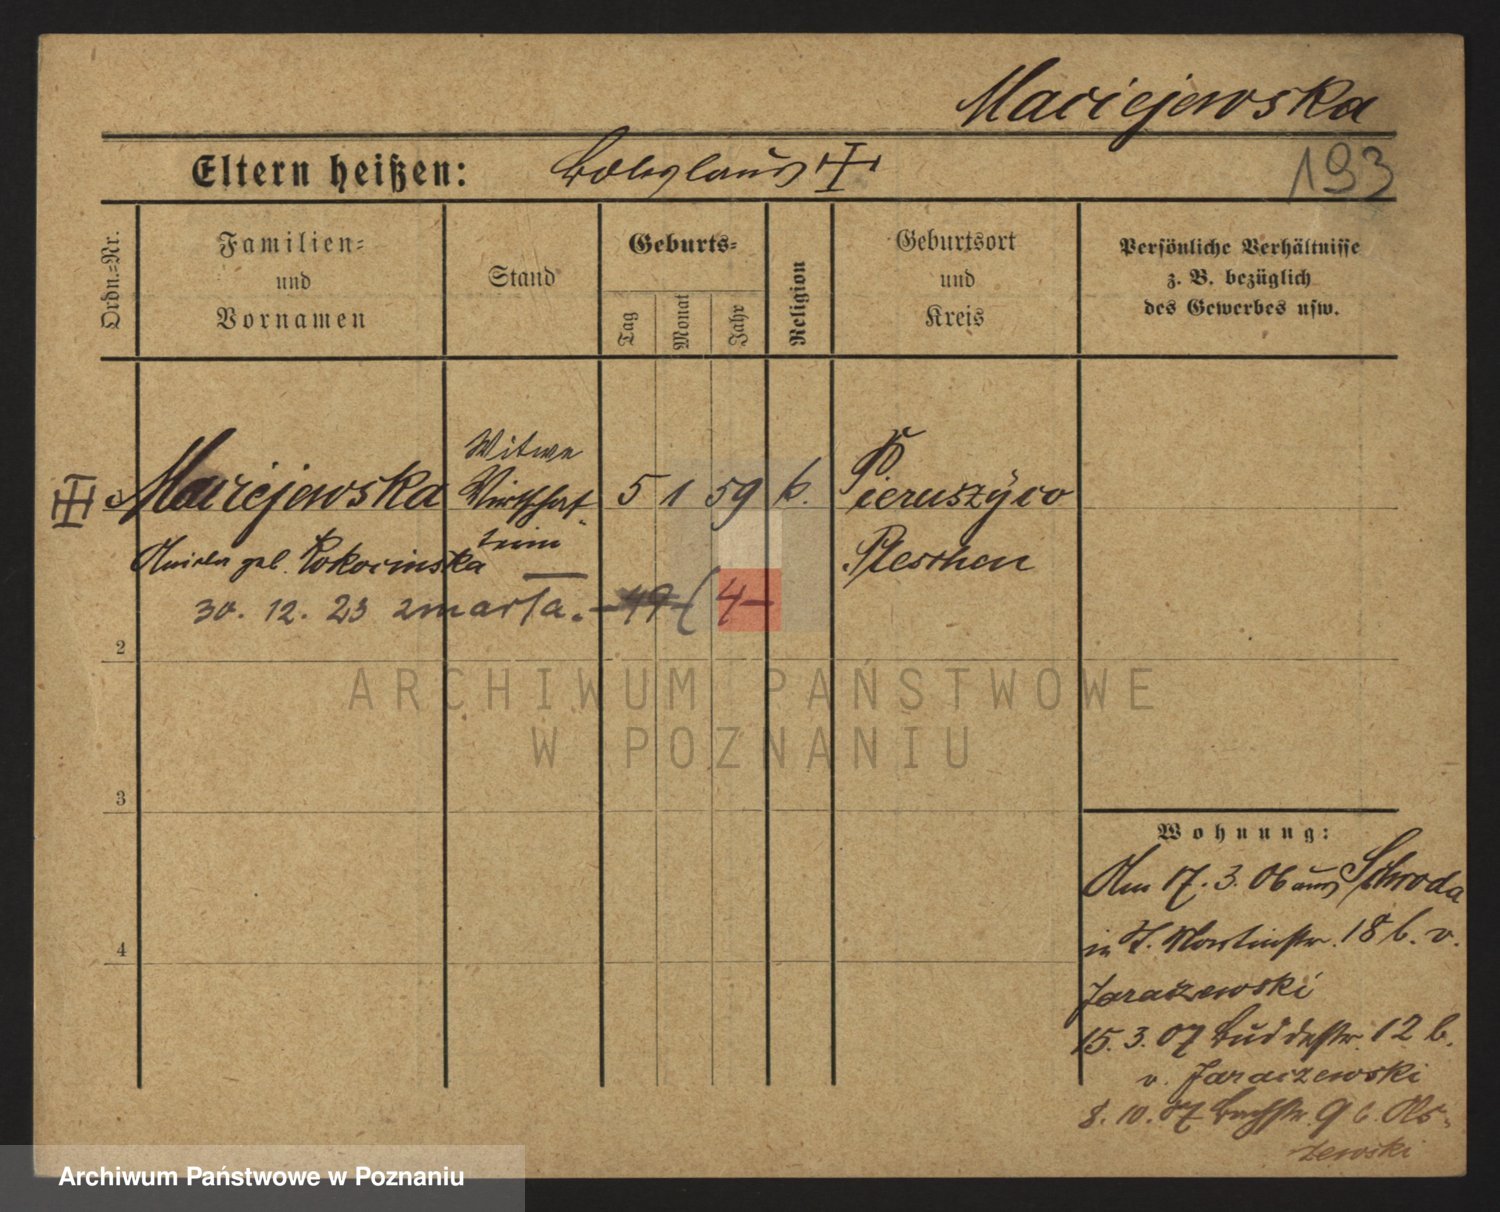 Maciejewska
Eltern heißen: Boleslaus
193
Ordn.=Nr.
Familien=
und
Vornamen
Stand
Geburts=
Tag
Monat
Jahr
Religion
Geburtsort
und
Kreis
Persönliche Verhältnisse
z. B. bezüglich
des Gewerbes usw.
Maciejewska
Witwe
Wirtschaf
terin
5 1 59 k.
Pieruszyco
Pleschen
geb. Pokocinska
30. 12. 23 zmarła. 49 4
2
ARCHIWUM PAŃSTWOWE
W POZNANIU
3
4
Wohnung:
Am 17. 3. 06 aus Schroda
in St. Martinstr. 18 b. v.
Jaraszewski
15. 3. 07 Buddestr. 12 b.
v. Jaraczewski
8. 10. 07 Bachstr. 9 b. Ols-
zewski
Archiwum Państwowe w Poznaniu